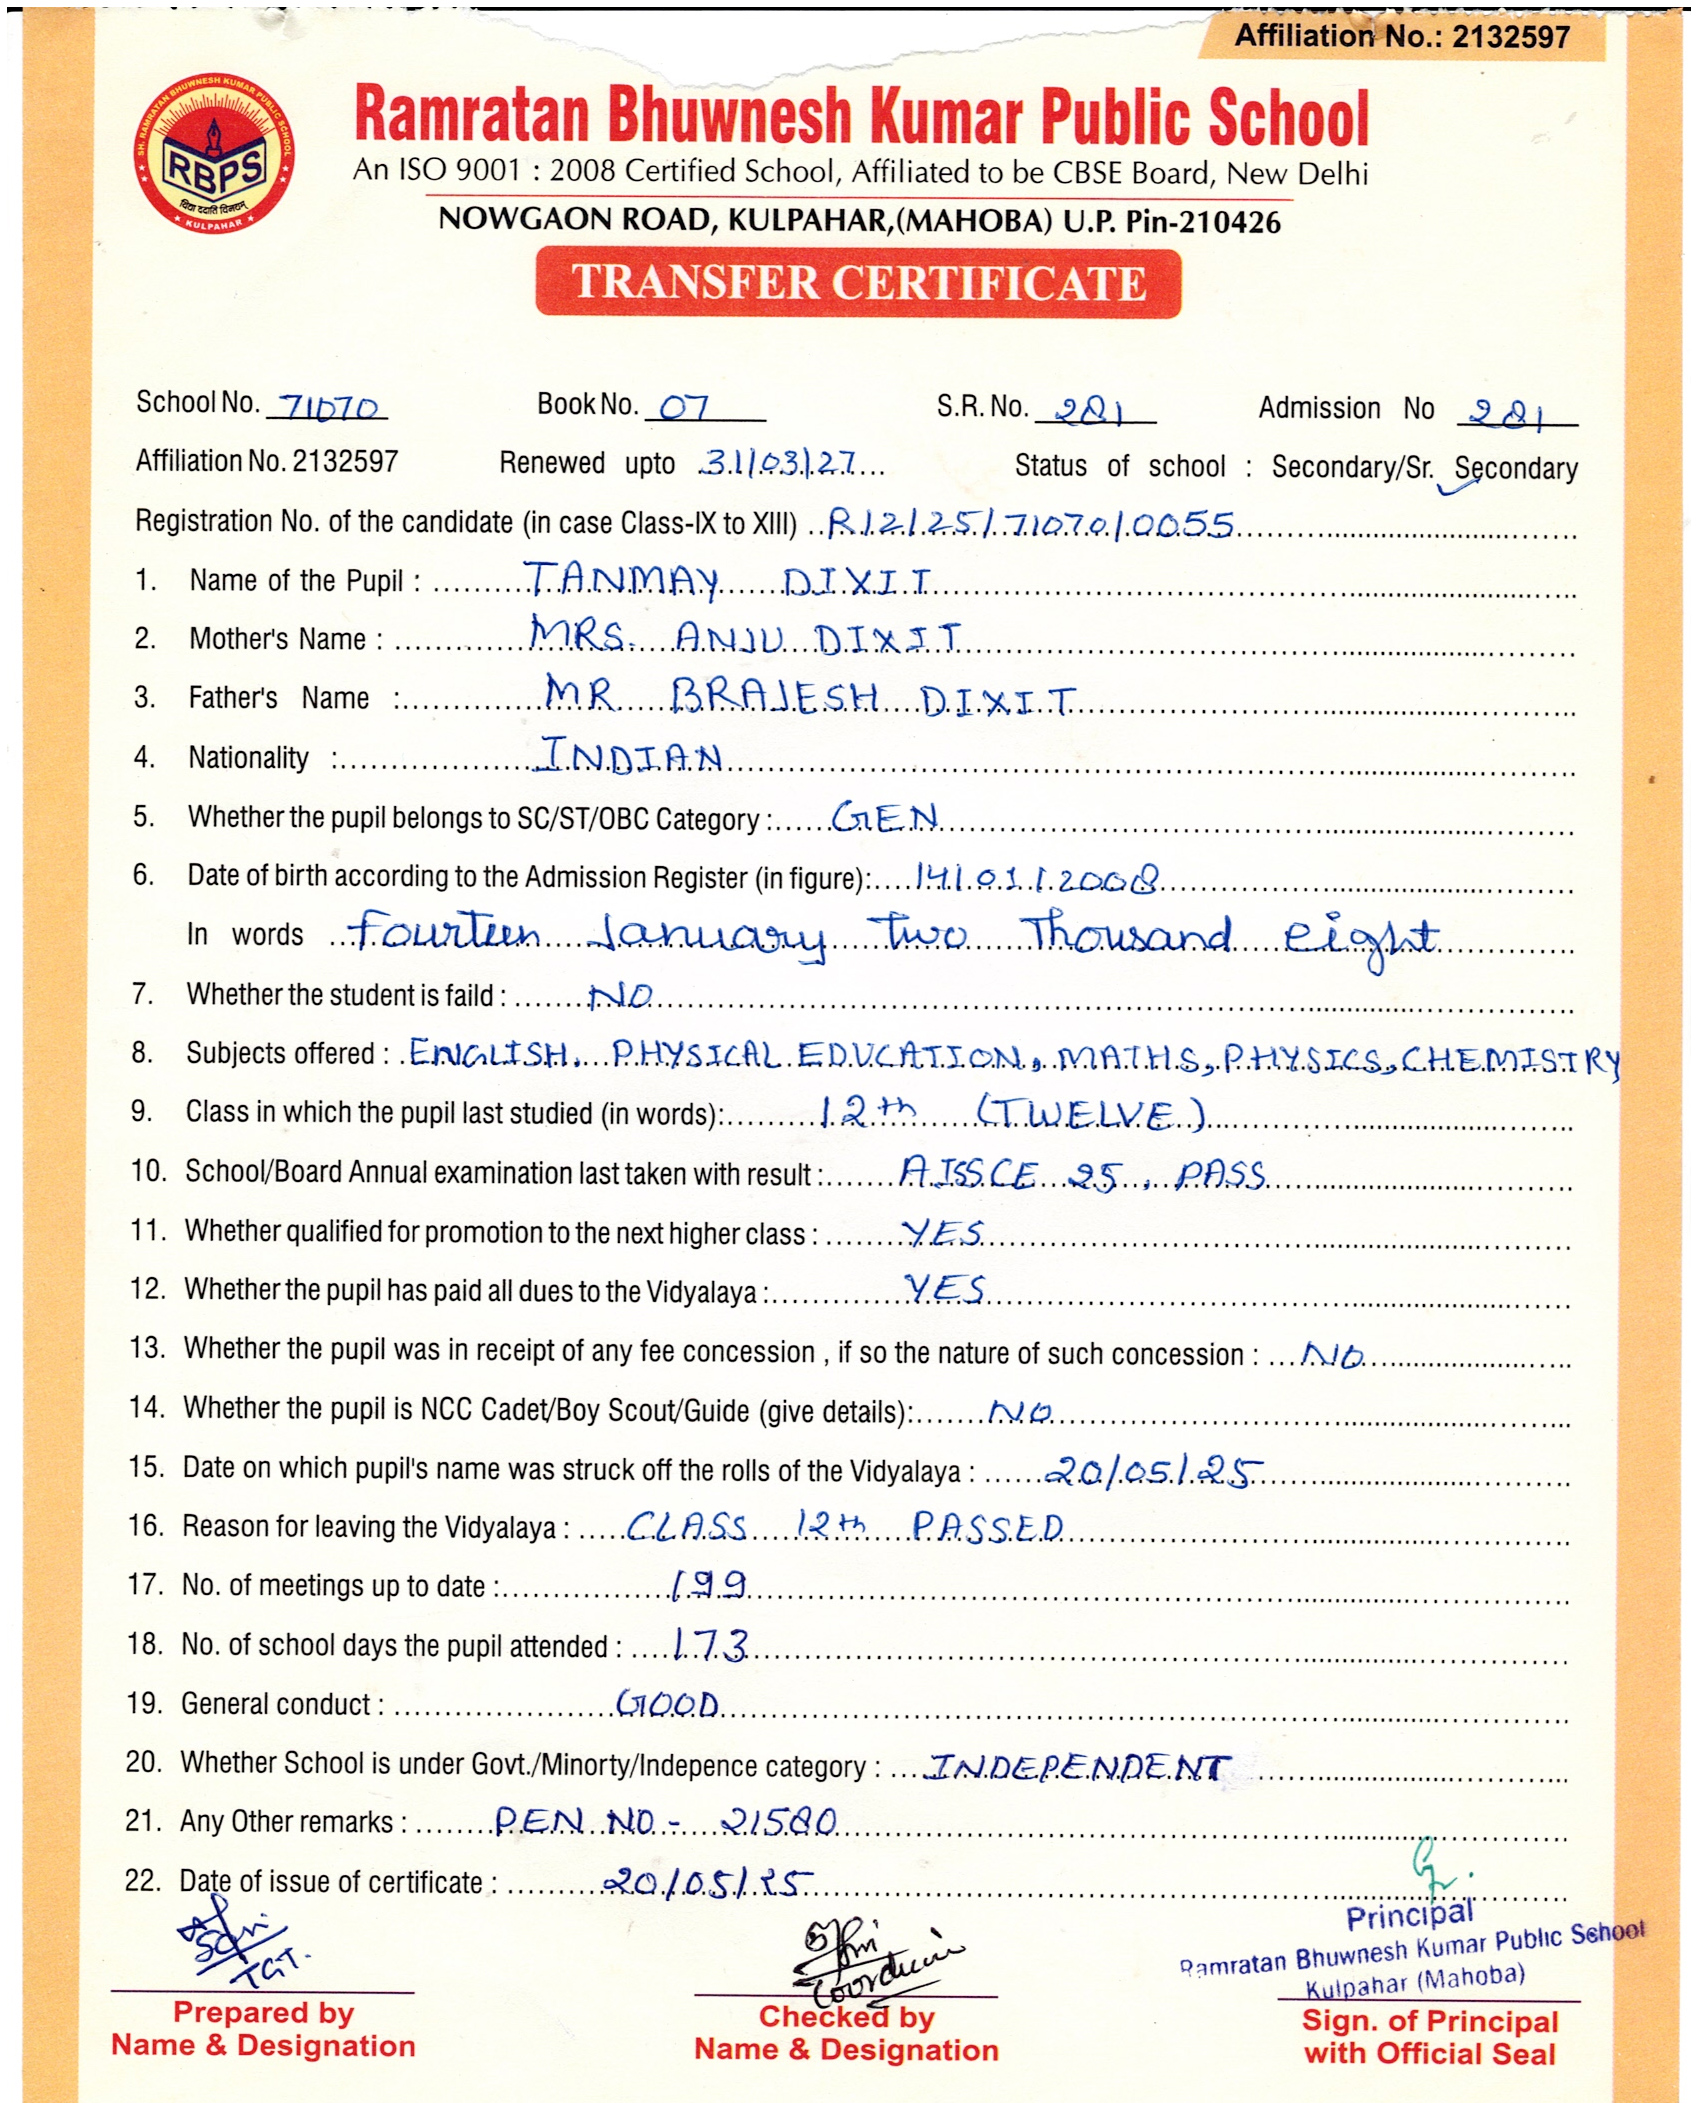 Affiliation No.: 2132597
SH. RAMRATAN BHUWNESH KUMAR PUBLIC SCHOOL
RBPS
विद्या ददाति विनयम्
KULPAHAR
Ramratan Bhuwnesh Kumar Public School
An ISO 9001 : 2008 Certified School, Affiliated to be CBSE Board, New Delhi
NOWGAON ROAD, KULPAHAR,(MAHOBA) U.P. Pin-210426
TRANSFER CERTIFICATE
School No. 71070 Book No. 07 S.R. No. 281 Admission No 281
Affiliation No. 2132597 Renewed upto 31/03/27 Status of school : Secondary/Sr. Secondary
Registration No. of the candidate (in case Class-IX to XIII) R/12/25/71070/0055
1. Name of the Pupil : TANMAY DIXIT
2. Mother's Name : MRS. ANJU DIXIT
3. Father's Name : MR BRAJESH DIXIT
4. Nationality : INDIAN
5. Whether the pupil belongs to SC/ST/OBC Category : GEN
6. Date of birth according to the Admission Register (in figure): 14/01/2008
In words Fourteen January Two Thousand eight
7. Whether the student is faild : NO
8. Subjects offered : ENGLISH, PHYSICAL EDUCATION, MATHS, PHYSICS, CHEMISTRY
9. Class in which the pupil last studied (in words): 12th (TWELVE)
10. School/Board Annual examination last taken with result : AISSCE 25, PASS
11. Whether qualified for promotion to the next higher class : YES
12. Whether the pupil has paid all dues to the Vidyalaya : YES
13. Whether the pupil was in receipt of any fee concession , if so the nature of such concession : NO
14. Whether the pupil is NCC Cadet/Boy Scout/Guide (give details): NO
15. Date on which pupil's name was struck off the rolls of the Vidyalaya : 20/05/25
16. Reason for leaving the Vidyalaya : CLASS 12th PASSED
17. No. of meetings up to date : 199
18. No. of school days the pupil attended : 173
19. General conduct : GOOD
20. Whether School is under Govt./Minorty/Indepence category : INDEPENDENT
21. Any Other remarks : PEN NO - 21580
22. Date of issue of certificate : 20/05/25
TGT.
Principal
Ramratan Bhuwnesh Kumar Public School
Kulpahar (Mahoba)
Prepared by
Name & Designation
Checked by
Name & Designation
Sign. of Principal
with Official Seal